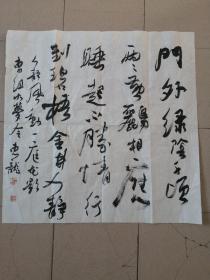 門外綠陰千頃
兩兩黃鸝相應
睡起不勝情行
到碧梧金井人靜
人靜風動一庭花影
曹組如夢令